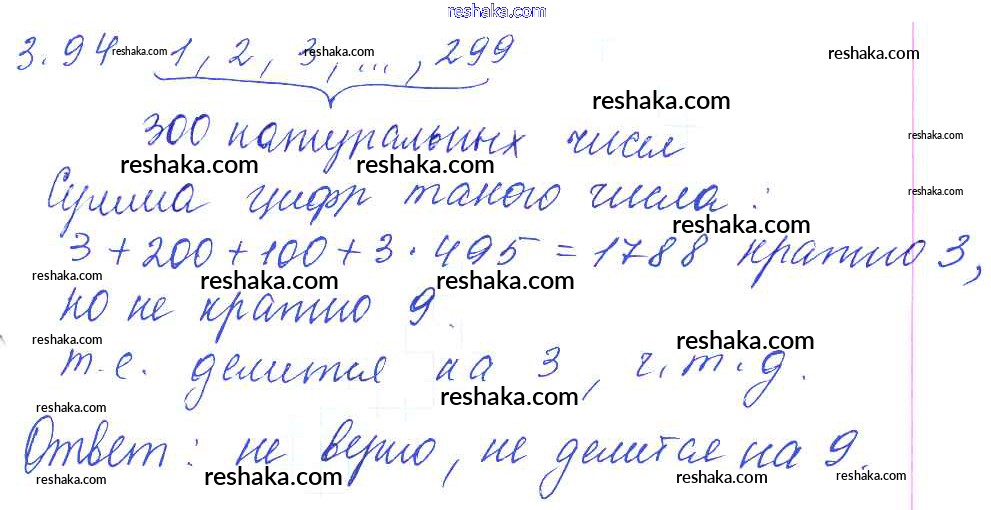 reshaka.com
3.94 reshaka.com 1, 2, 3, ..., 299 reshaka.com reshaka.com
reshaka.com
300 натуральных чисел reshaka.com
reshaka.com reshaka.com
Сумма цифр такого числа: reshaka.com
reshaka.com
3 + 200 + 100 + 3 · 495 = 1788 кратно 3,
reshaka.com reshaka.com reshaka.com reshaka.com
но не кратно 9
reshaka.com reshaka.com reshaka.com
т.е. делится на 3, ч.т.д.
reshaka.com
reshaka.com reshaka.com
Ответ: не верно, не делится на 9.
reshaka.com reshaka.com reshaka.com reshaka.com